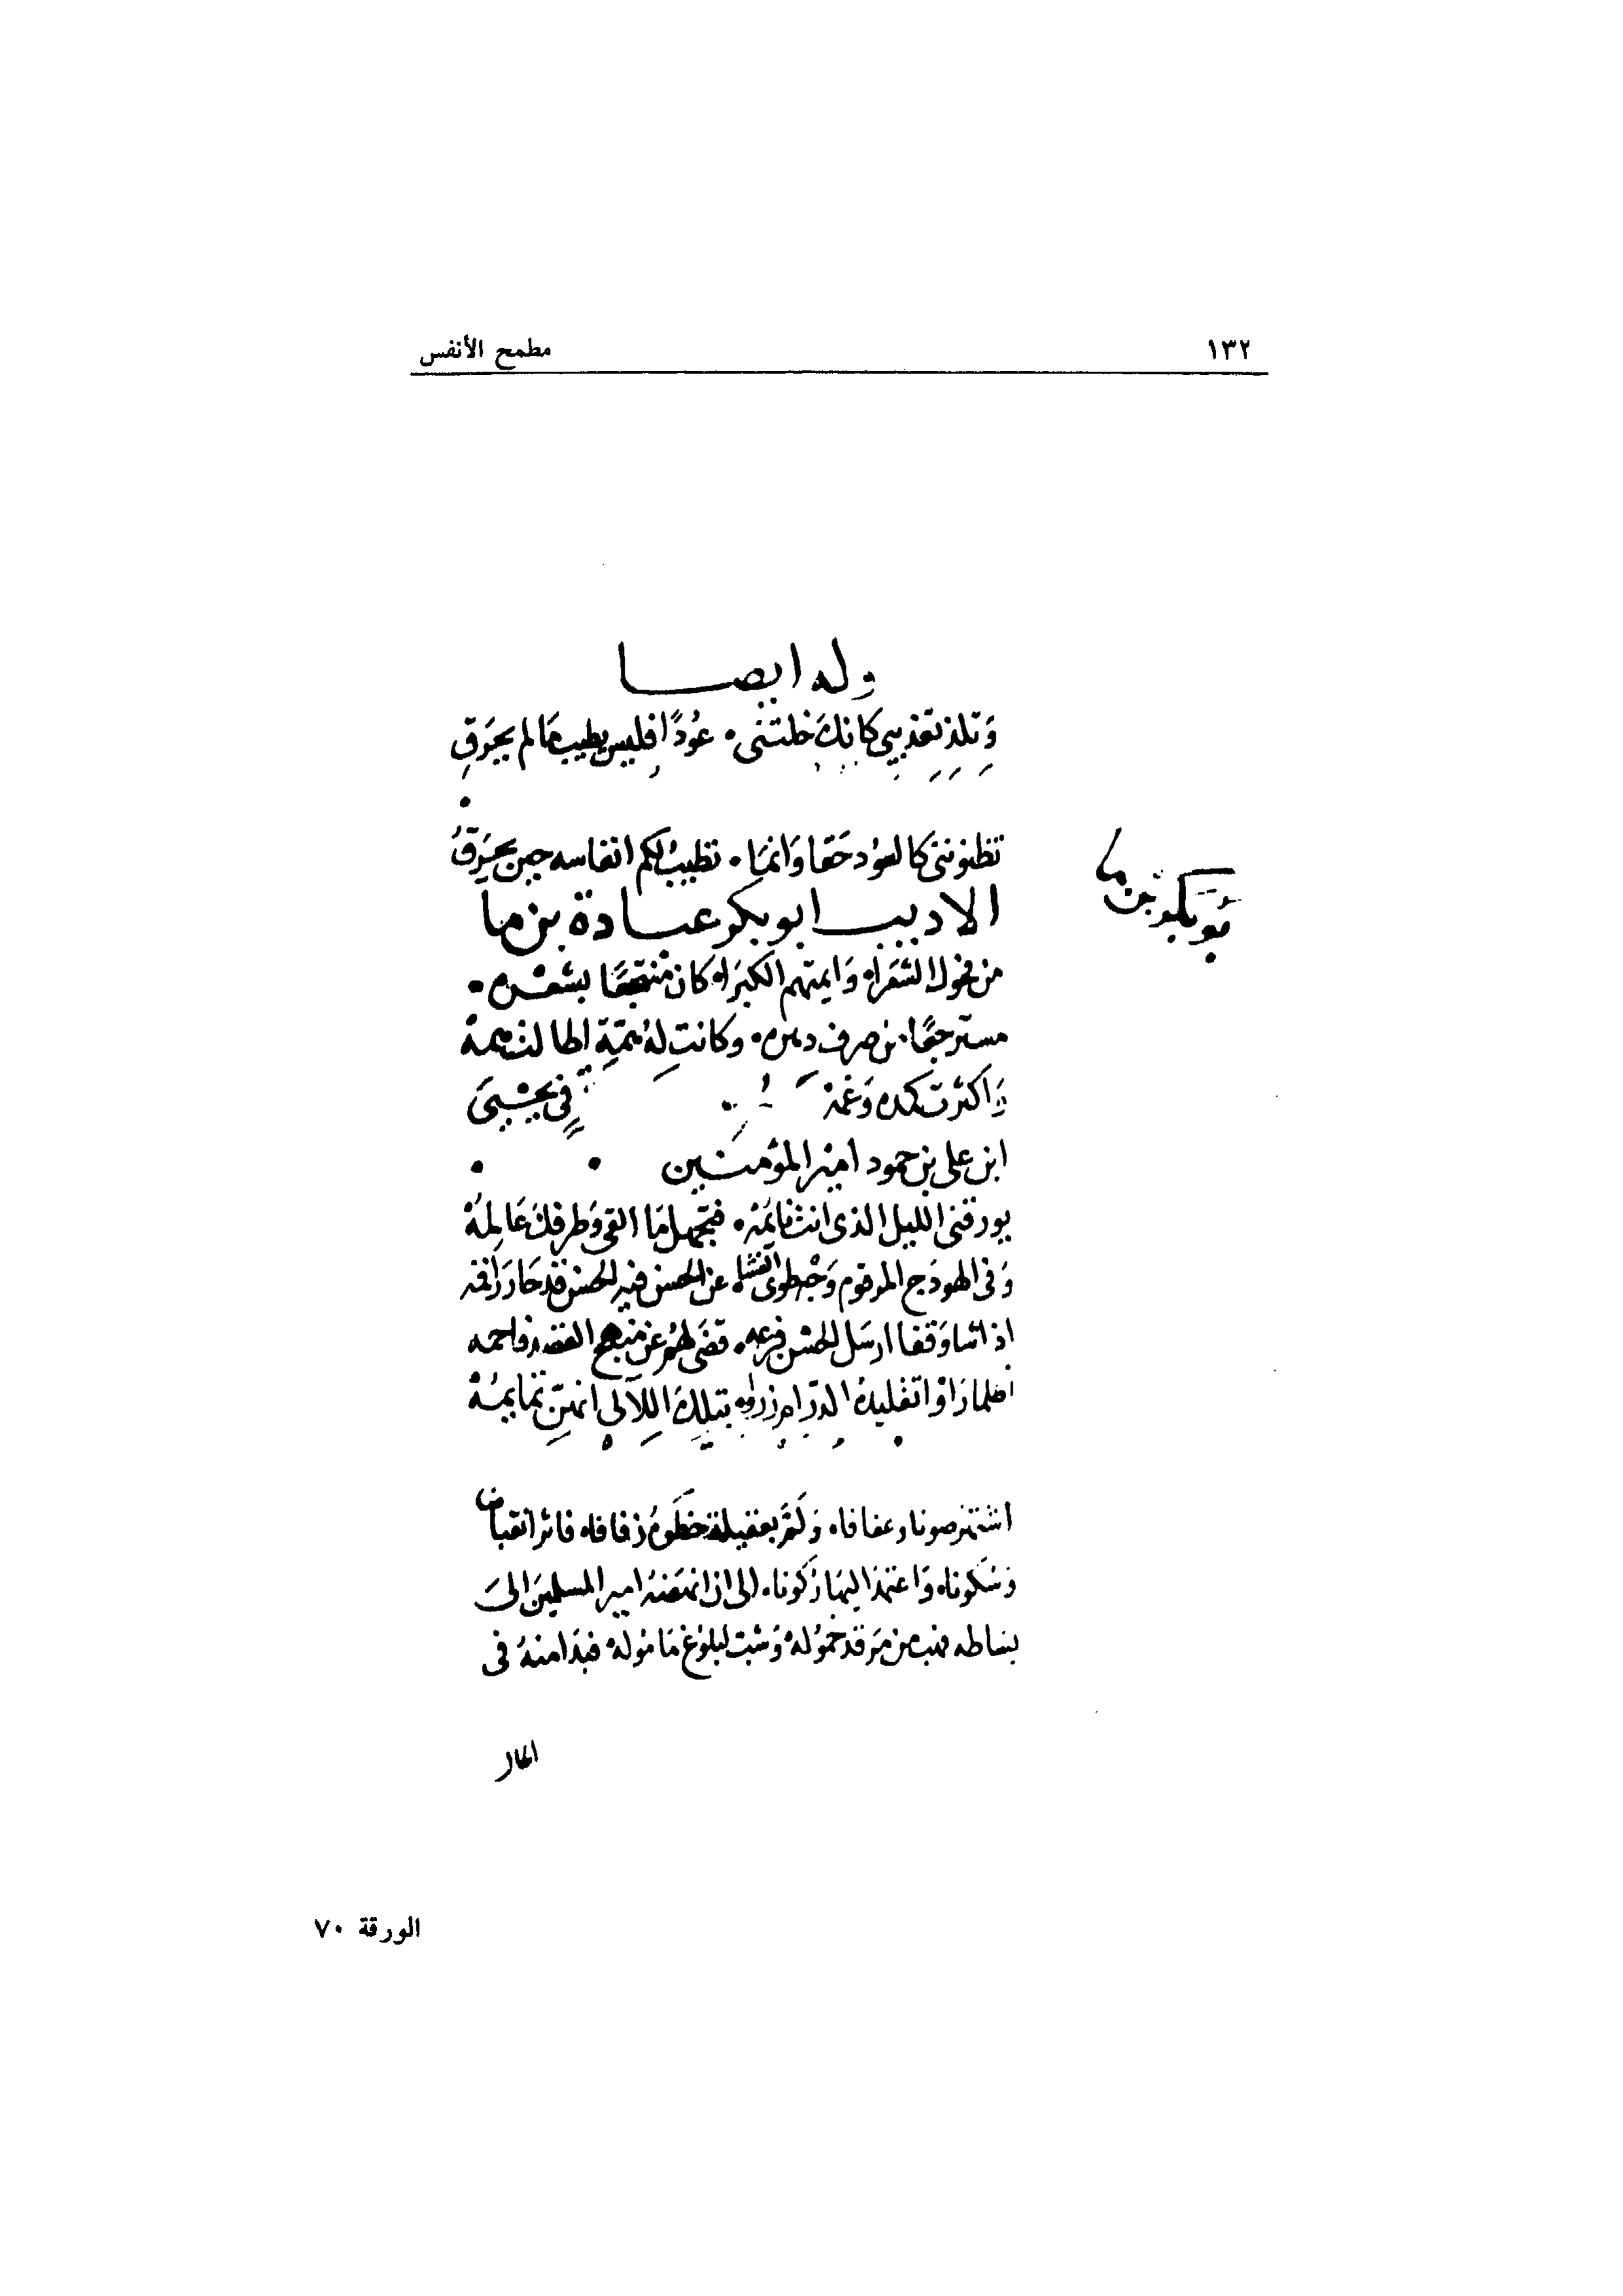 ١٣٢
مطمح الأنفس
وله ايضا
وَتلذ تعذيبى كانك خلتنى • عُودًا فليس يطيب مَا لم يحرَقِ
تظنوننى كالعود حَقا وَانمَا • تطيبُ لكم انفاسه حين يحرَقُ
الاديب ابو بكر عبادة بن ما
ابو بكر بن ما
من فحول الشعَراء وَايمتهم الكبَراء كان منتجعًا بشعره •
مسترجعًا من صرف دهره • وكانت له همّة اطالت همه
وَاكثرت كمده وَغمه
فى يحيىَ
ابن على بن حمود امير المؤمنين
يورقنى الليل الذى انت نايمُه • فتجهل مَا القى وَطرفك عَالمهُ
وَفى الهودَج المرقوم وَجه طوى الحشا • عن الحسن فيه الحسن قد حَار رَاقمه
اذا شا وَقفا ارسَل الحسن فرعه • قضى لهم عن منهج القصد فاحمه
اظلما رَاوْا تقليدهُ الدرّ ام زروا • بتلك اللآلى انهنّ تمايمُهْ
اشتهر صونا وعفافا • وَلم بعقيلة حظوة زفافا • فاثر انقباضا
وَسَكونا • وَاعتمد اليهَا رَكونا • الى ان انهضهُ امير المسلمين الىَ
بسَاطه فهب من مَرقد خمُوله وَشب لبلوغ مَامُوله فبَدَا منهُ فى
الحال
الورقة ٧٠